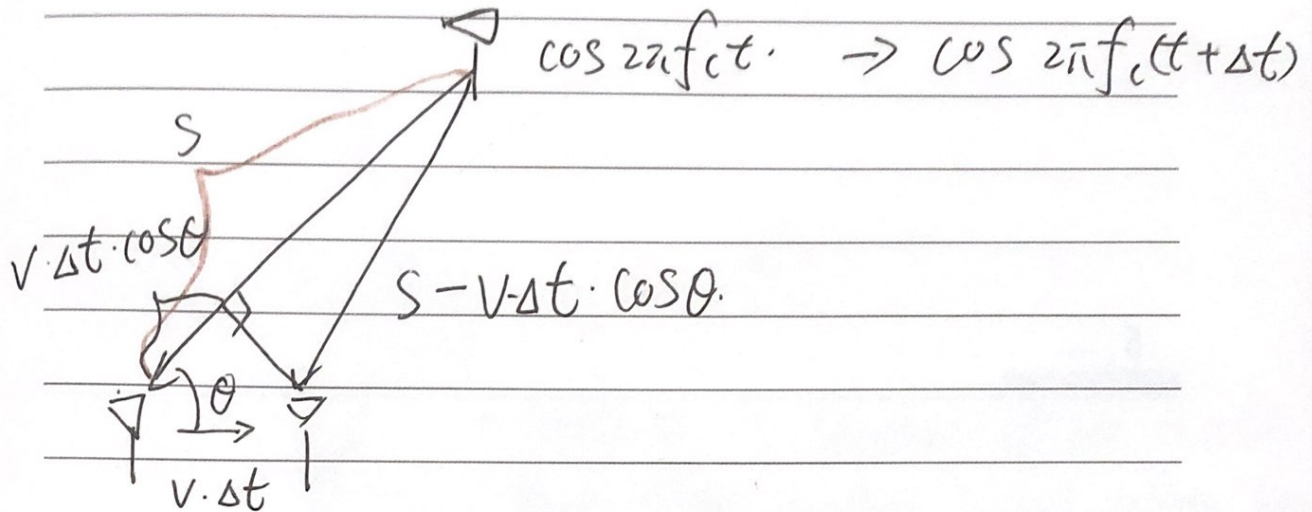 cos 2πfct. → cos 2πfc(t+Δt)
S
V·Δt·cosθ
S-V·Δt·cosθ.
θ
V·Δt